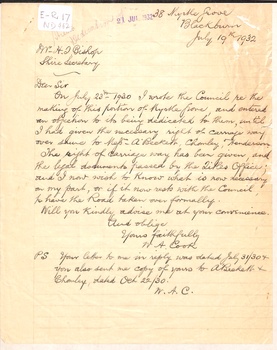 E-R.17
21 JUL 1932
38 Myrtle Grove
Blackburn
July 19th 1932
Mr H. T. Bishop
Shire Secretary
Dear Sir
On July 23rd 1930 I wrote the Council re the
making of this portion of Myrtle Grove and entered
an objection to its being dedicated to them, until
I had given the necessary right of carriage way
over shame to Messrs A. Beckett, Chomley, Henderson
This right of carriage way has been given, and
the legal documents passed by the Titles Office,
and I now wish to know what is now necessary
on my part, or if it now rests with the Council
to have the Road taken over formally.
Will you kindly advise me at your convenience
And oblige
Yours faithfully
W A Cook
PS Your letter to me in reply was dated July 31/30 &
you also sent me copy of yours to A'Beckett &
Chomley, dated Oct 22/30.
W. A. C.